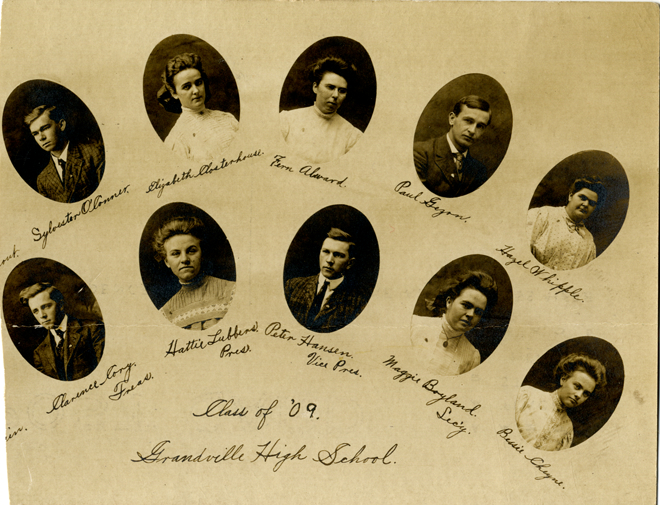 Sylvester O'Conner.
Elizabeth Oosterhouse.
Fern Alward.
Paul Gezon.
Hazel Whipple.
Clarence Cory.
Treas.
Hattie Lubbers.
Pres.
Peter Hansen.
Vice Pres.
Maggie Boyland.
Sec'y.
Bessie Cheyne.
Class of '09.
Grandville High School.